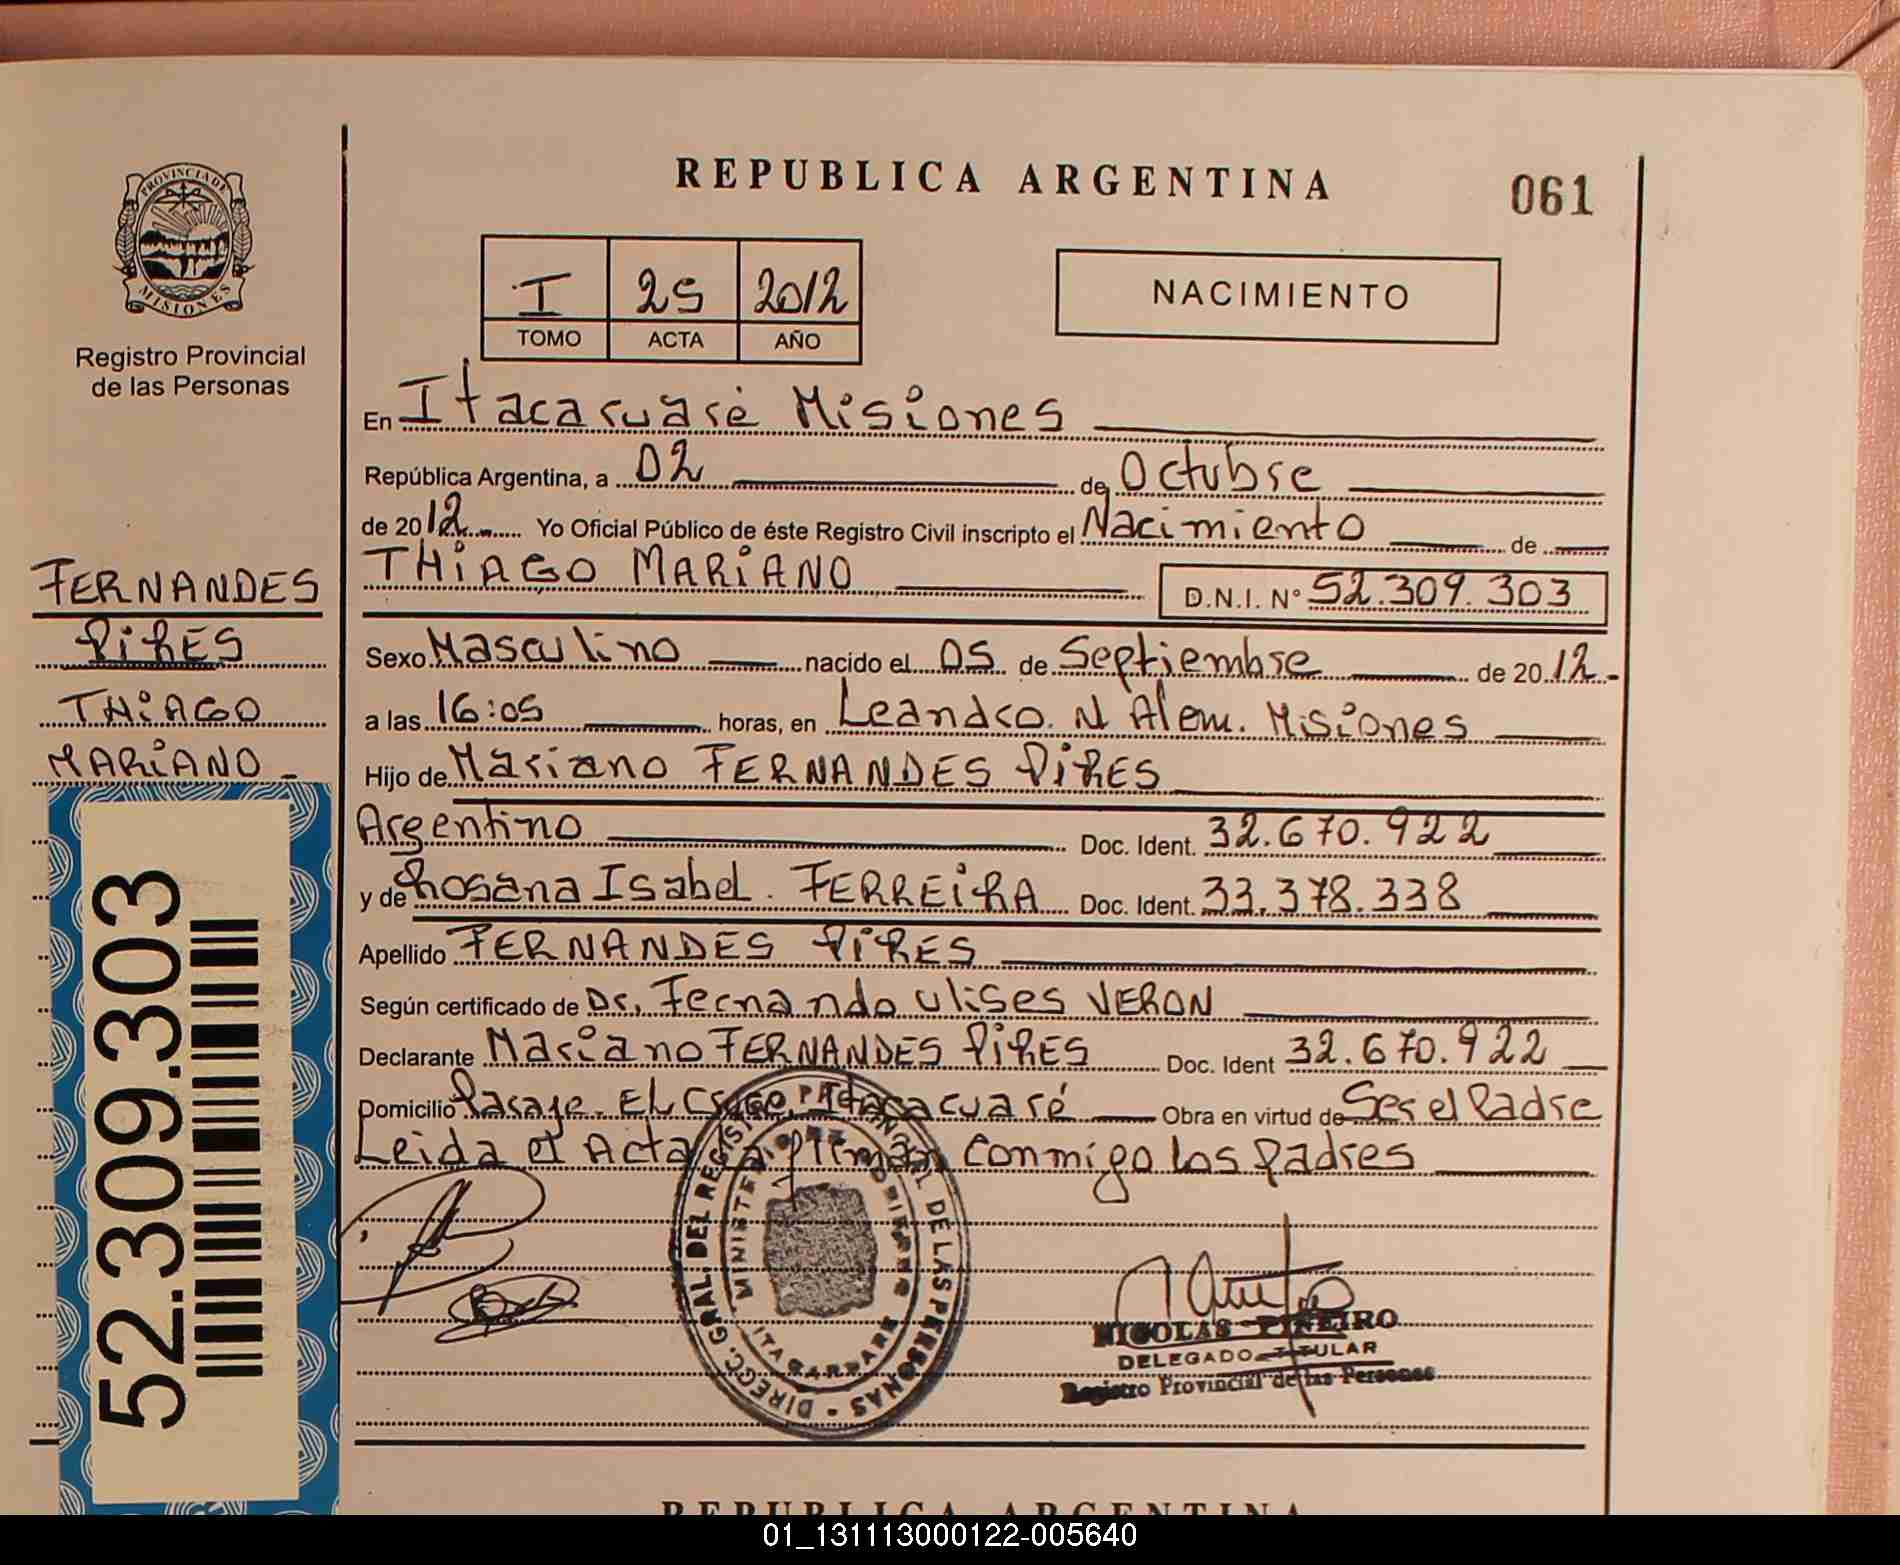 REPUBLICA ARGENTINA
061
PROVINCIA DE MISIONES
Registro Provincial
de las Personas
I 25 2012
TOMO ACTA AÑO
NACIMIENTO
En Itacaruaré Misiones
República Argentina, a 02 de Octubre
de 2012 Yo Oficial Público de éste Registro Civil inscripto el Nacimiento de
THIAGO MARIANO
D.N.I. N° 52.309.303
Sexo Masculino nacido el 05 de Septiembre de 2012.-
a las 16:05 horas, en Leandro. N Alem. Misiones
Hijo de Mariano FERNANDES PIRES
Argentino Doc. Ident. 32.670.922
y de Rosana Isabel. FERREIRA Doc. Ident. 33.378.338
Apellido FERNANDES PIRES
Según certificado de Dr. Fernando Ulises VERON
Declarante Mariano FERNANDES PIRES Doc. Ident 32.670.922
Domicilio Pasaje. El Cruce. Itacaruaré Obra en virtud de Ser el Padre
Leida el Acta la firman conmigo los Padres
FERNANDES
PIRES
THIAGO
MARIANO -
52.309.303
DIRECC. GRAL. DEL REGISTRO PROVINCIAL DE LAS PERSONAS -
MINISTERIO DE GOBIERNO
NICOLAS PIÑEIRO
DELEGADO TITULAR
Registro Provincial de las Personas
REPUBLICA ARGENTINA
01_131113000122-005640